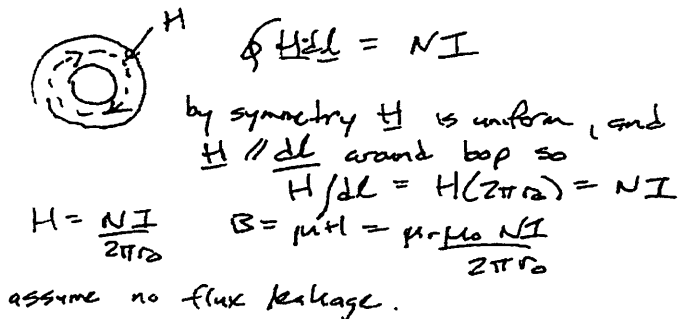 H
∮ H·dl = NI
by symmetry H is uniform, and
H // dl around loop so
H∫dl = H(2πr₀) = NI
H = NI / 2πr₀   B = μH = μᵣμ₀ NI / 2πr₀
assume no flux leakage.